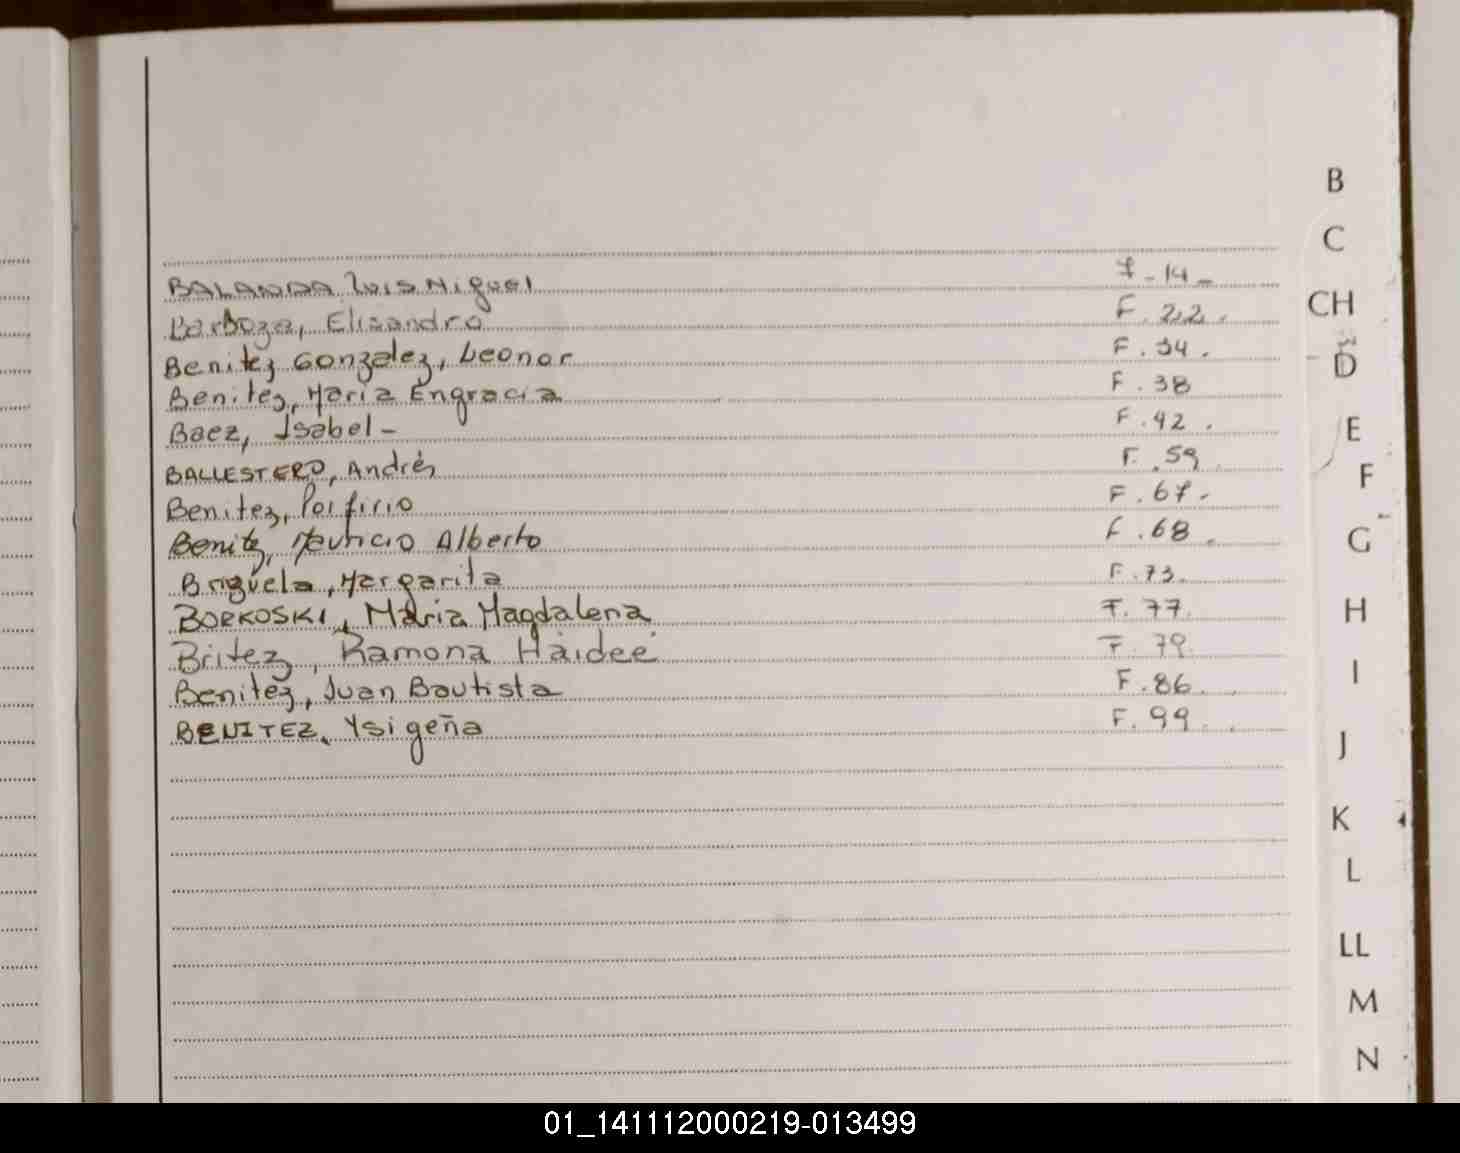 BALANDA Luis Miguel F-14-
Barboza, Elisandro F. 22.
Benitez Gonzalez, Leonor F. 34.
Benitez, Maria Engracia F. 38
Baez, Isabel- F. 42.
BALLESTERO, Andrés F. 59
Benitez, Porfirio F. 67.
Benitz, Mauricio Alberto F. 68
Brizuela, Margarita F. 73.
BORKOSKI, Maria Magdalena F. 77.
Britez, Ramona Haidee F. 79.
Benitez, Juan Bautista F. 86.
BENITEZ, Ysigeña F. 99.
B
C
CH
D
E
F
G
H
I
J
K
L
LL
M
N
01_141112000219-013499